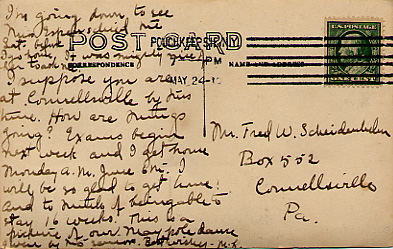 I'm going down to see
POST CARD
POUGHKEEPSIE, N.Y.
PM
MAY 24
CORRESPONDENCE
NAME AND ADDRESS
U.S. POSTAGE
I suppose you are
at Connellsville by this
time. How are things
going? Exams begin
next week and I get home
Monday A.M. June 6th. I
will be so glad to get home!
and to think of being able to
stay 16 weeks. This is a
picture of our May pole dance
given by the Best wishes - M.K.
Mr. Fred W. Scheidenhelm
Box 552
Connellsville
Pa.